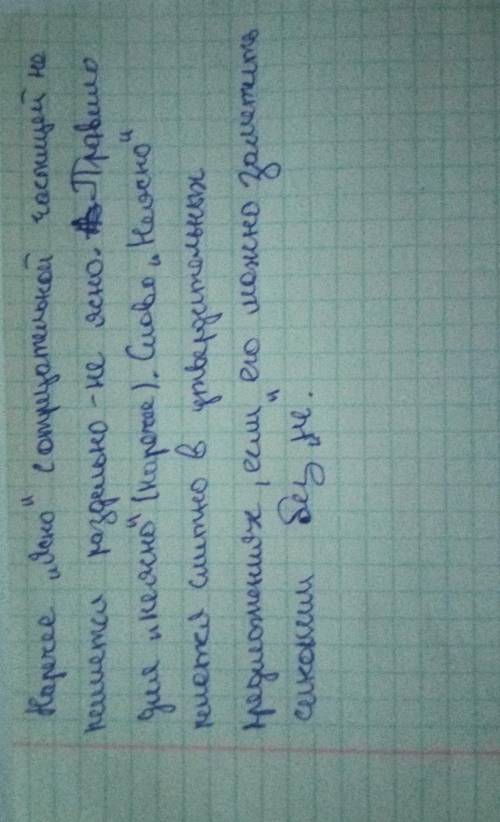 Наречее „Ясно" с отрицательной частицей не
пишется раздельно - не ясно. Правило
для „неясно" (наречие). Слово „Неясно"
пишется слитно в утвердительных
предложениях, если его можно заметить
синоним без „не".